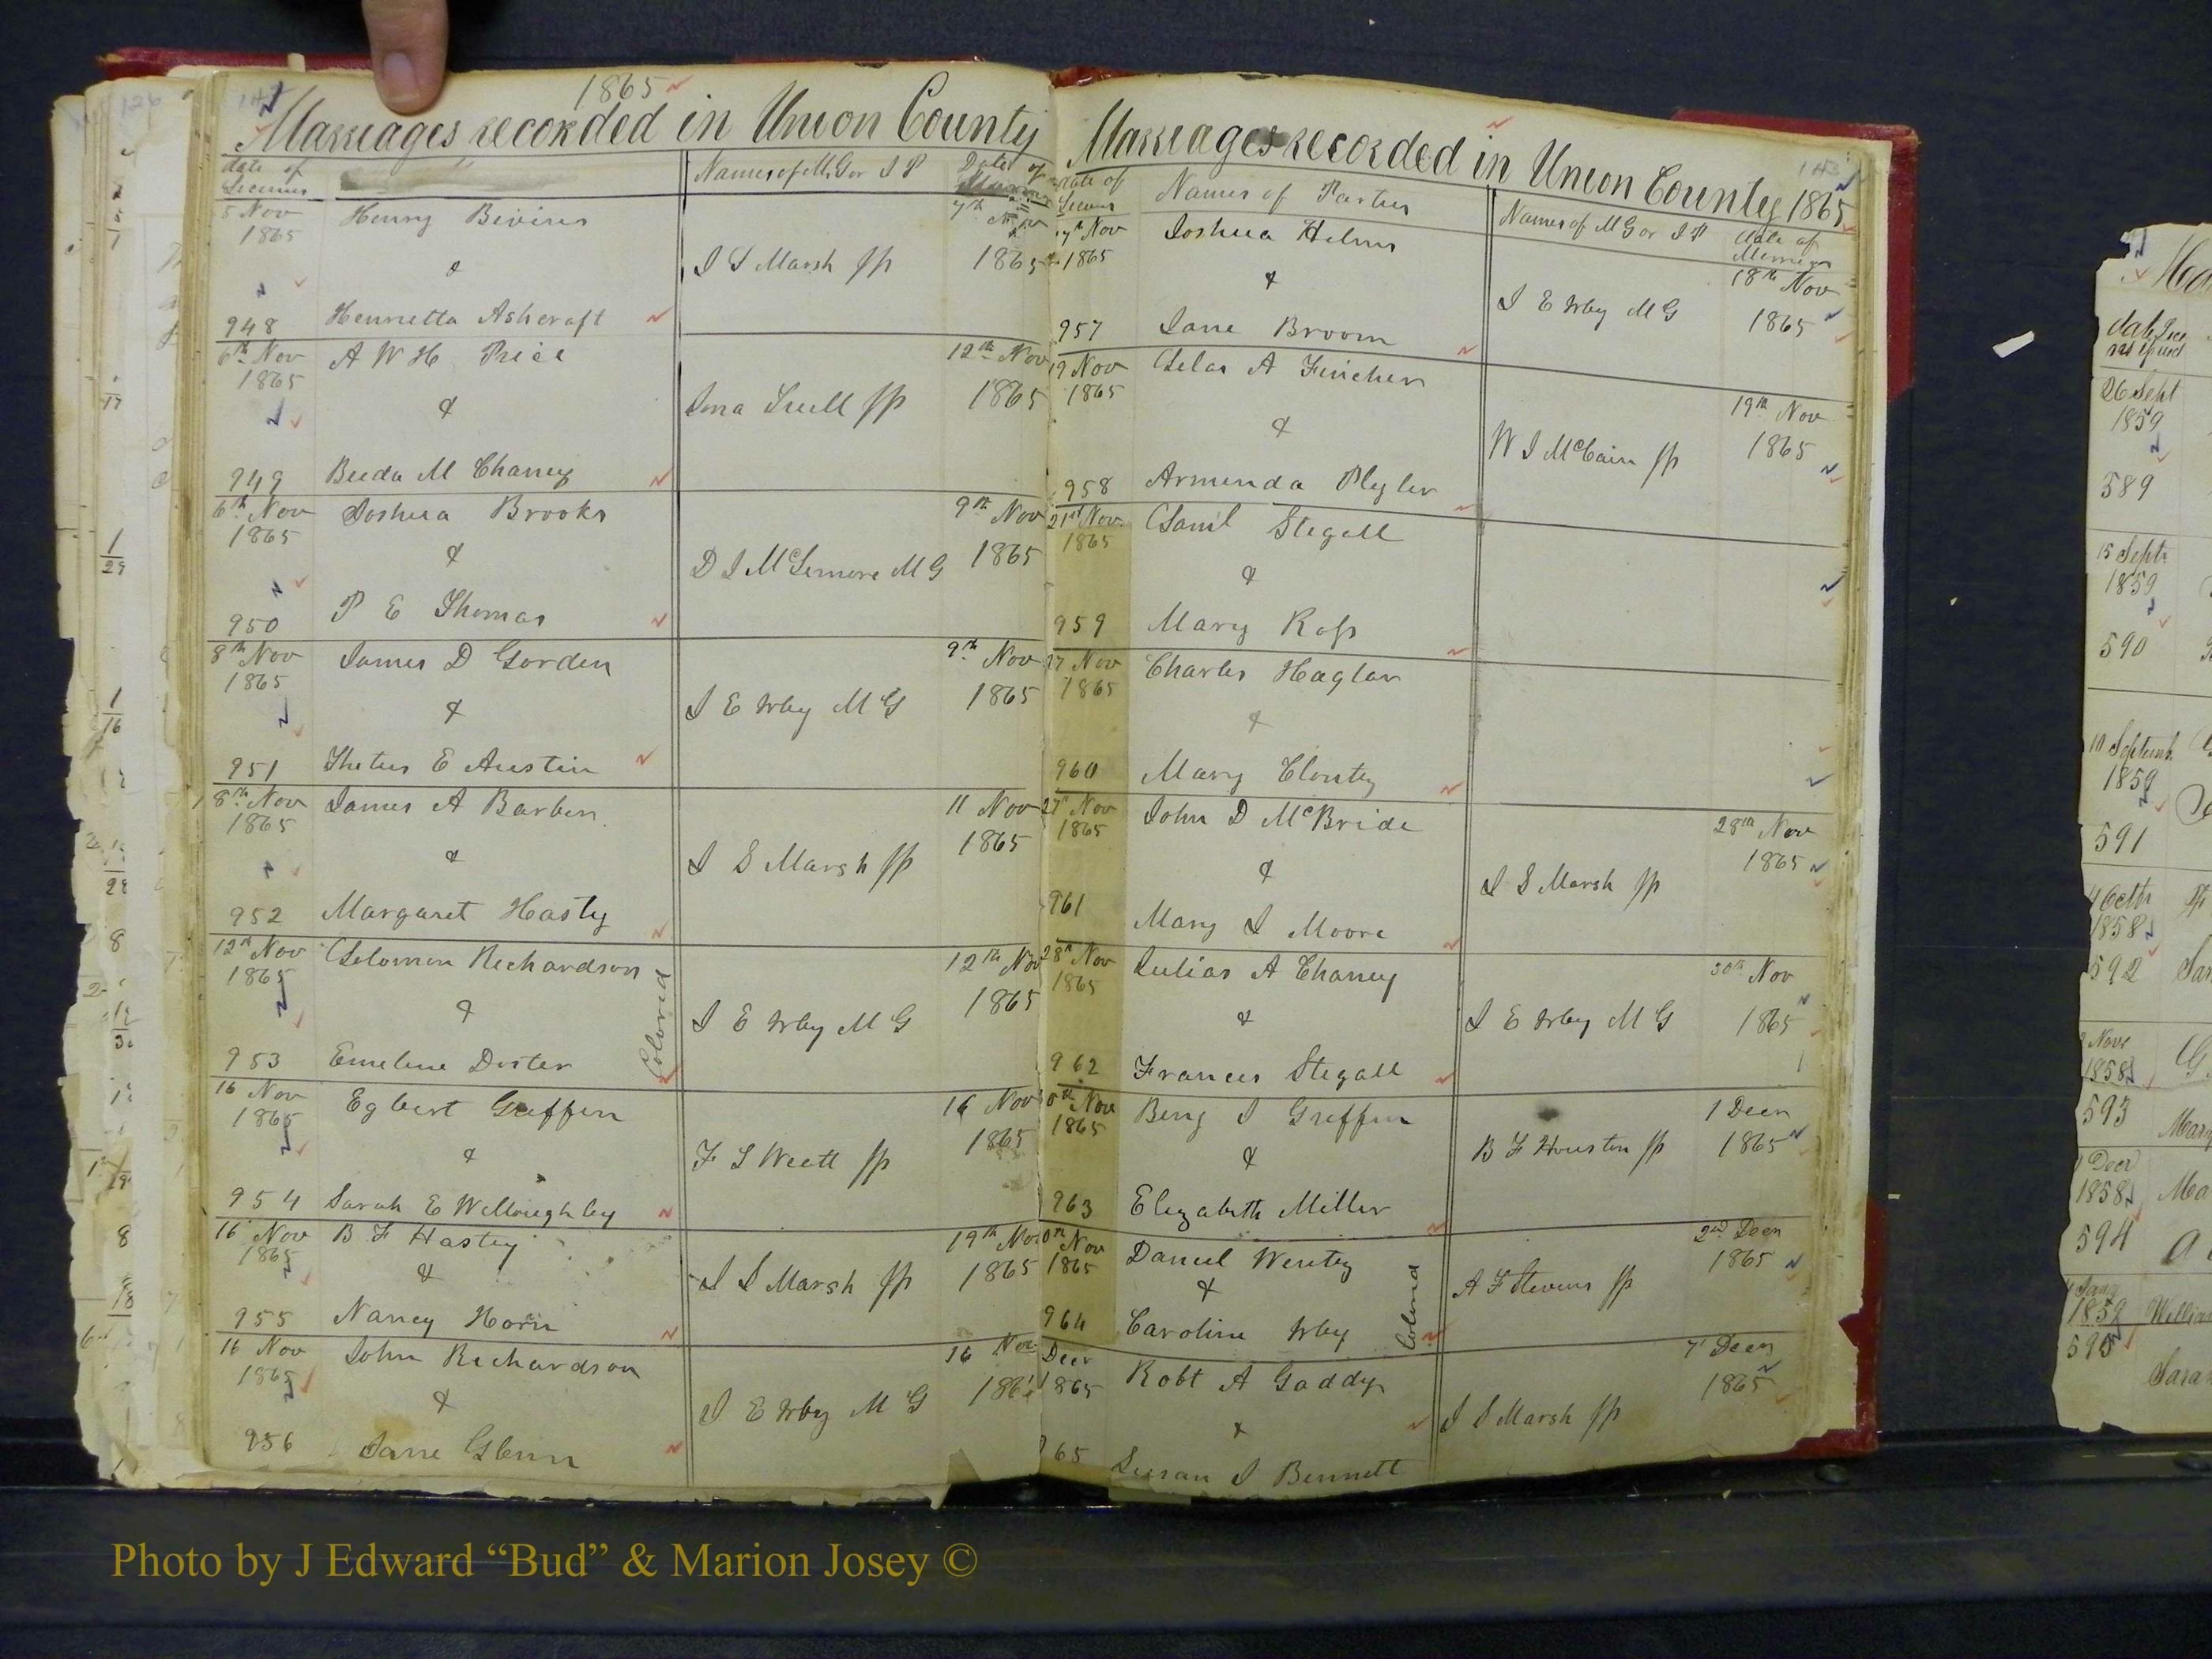 1865
Marriages recorded in Union County
date of License
Names of M G or J P
Date of
5 Nov 1865
Henry Bivins
&
948
Henrietta Ashcraft
J S Marsh JP
7th Nov 1865
6th Nov 1865
A W H Price
&
949
Beeda M Chaney
JP
12th Nov 1865
6th Nov 1865
Joshua Brooks
&
950
P E Thomas
D J McLemore M G
9th Nov 1865
8th Nov 1865
James D Gordin
&
951
E Austin
J E Irby M G
9th Nov 1865
8th Nov 1865
James A Barber
&
952
Margaret Hasty
J S Marsh JP
11 Nov 1865
12th Nov 1865
Solomon Richardson
&
953
Emeline Doster
Colored
J E Irby M G
12th Nov 1865
16 Nov 1865
Egbert Griffin
&
954
Sarah E Willoughby
JP
16 Nov 1865
16 Nov 1865
B F Hasty
&
955
Nancy Horn
J S Marsh JP
19th Nov 1865
16 Nov 1865
John Richardson
&
956
Jane Glenn
J E Irby M G
16 Nov
Marriages recorded in Union County 1865
date of License
Names of Parties
Names of M G or J P
date of
17th Nov 1865
Joshua Helms
&
957
Jane Broom
J E Irby M G
18th Nov 1865
19 Nov 1865
Silas A Fincher
&
958
Armenda Plyler
W J McCain JP
19th Nov 1865
21st Nov 1865
Saml Stegall
&
959
Mary Ross
27 Nov 1865
Charles Haglar
&
960
Mary Clonty
27th Nov 1865
John D McBride
&
961
Mary J Moore
J S Marsh JP
28th Nov 1865
28th Nov 1865
Julias A Chaney
&
962
Frances Stegall
J E Irby M G
30th Nov 1865
Nov 1865
Benj J Griffin
&
963
Elizabeth Miller
B F Houston JP
1 Decr 1865
Nov 1865
Daniel Wentz
&
964
Caroline Irby
Colord
A F Stevens JP
2nd Decr 1865
Decr 1865
Robt A Gaddy
&
65
Susan J Bennett
J S Marsh JP
7 Decr 1865
26 Sept
1859
589
15 Septr
1859
590
1859
591
4 Octr
1858
592
1858
593
1 Decr
1858
594
1859
595
Photo by J Edward “Bud” & Marion Josey ©